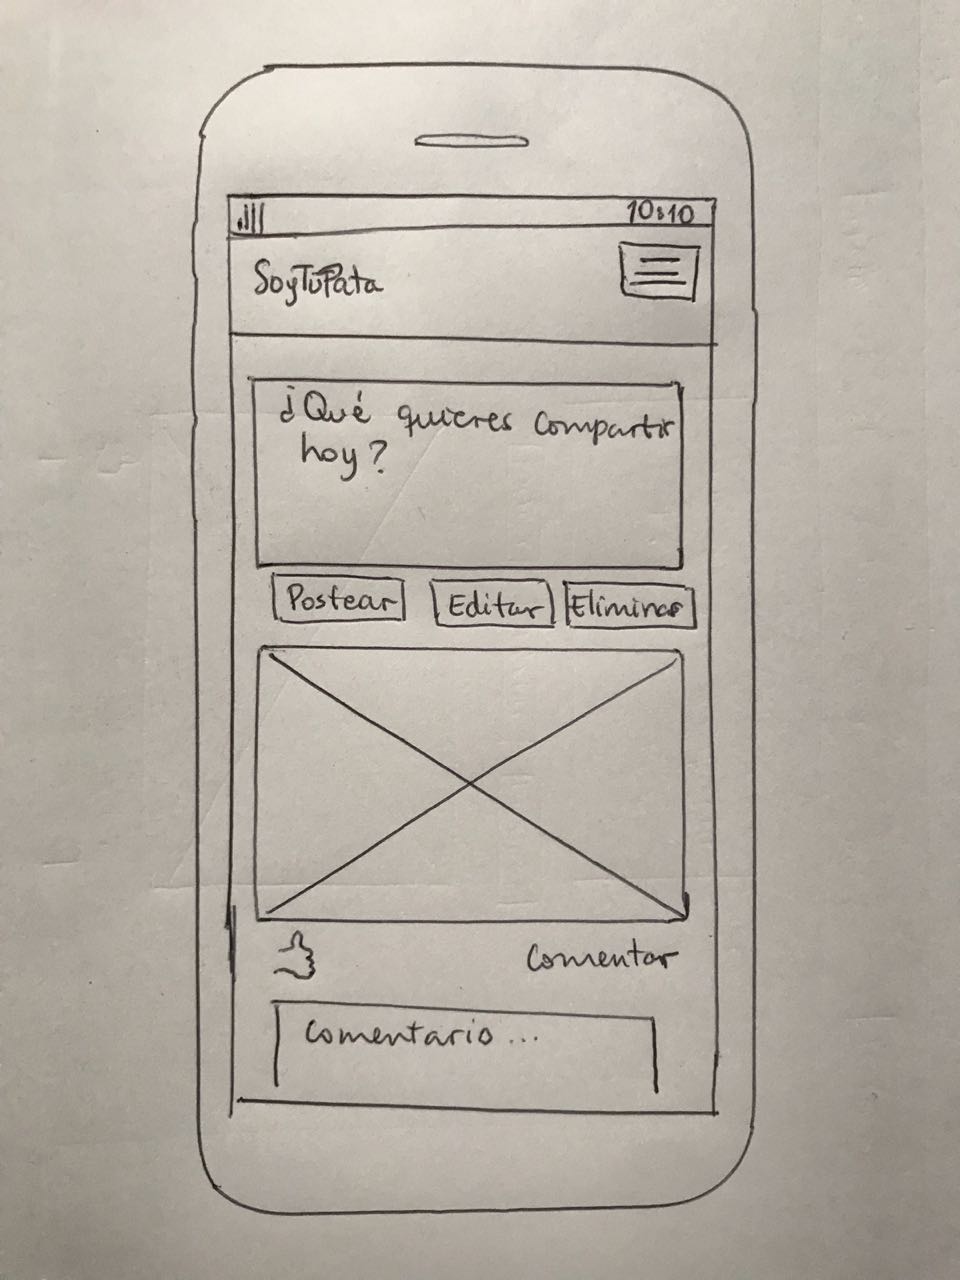 10:10
SoyTuPata
¿Qué quieres compartir
hoy?
Postear Editar Eliminar
Comentar
Comentario...